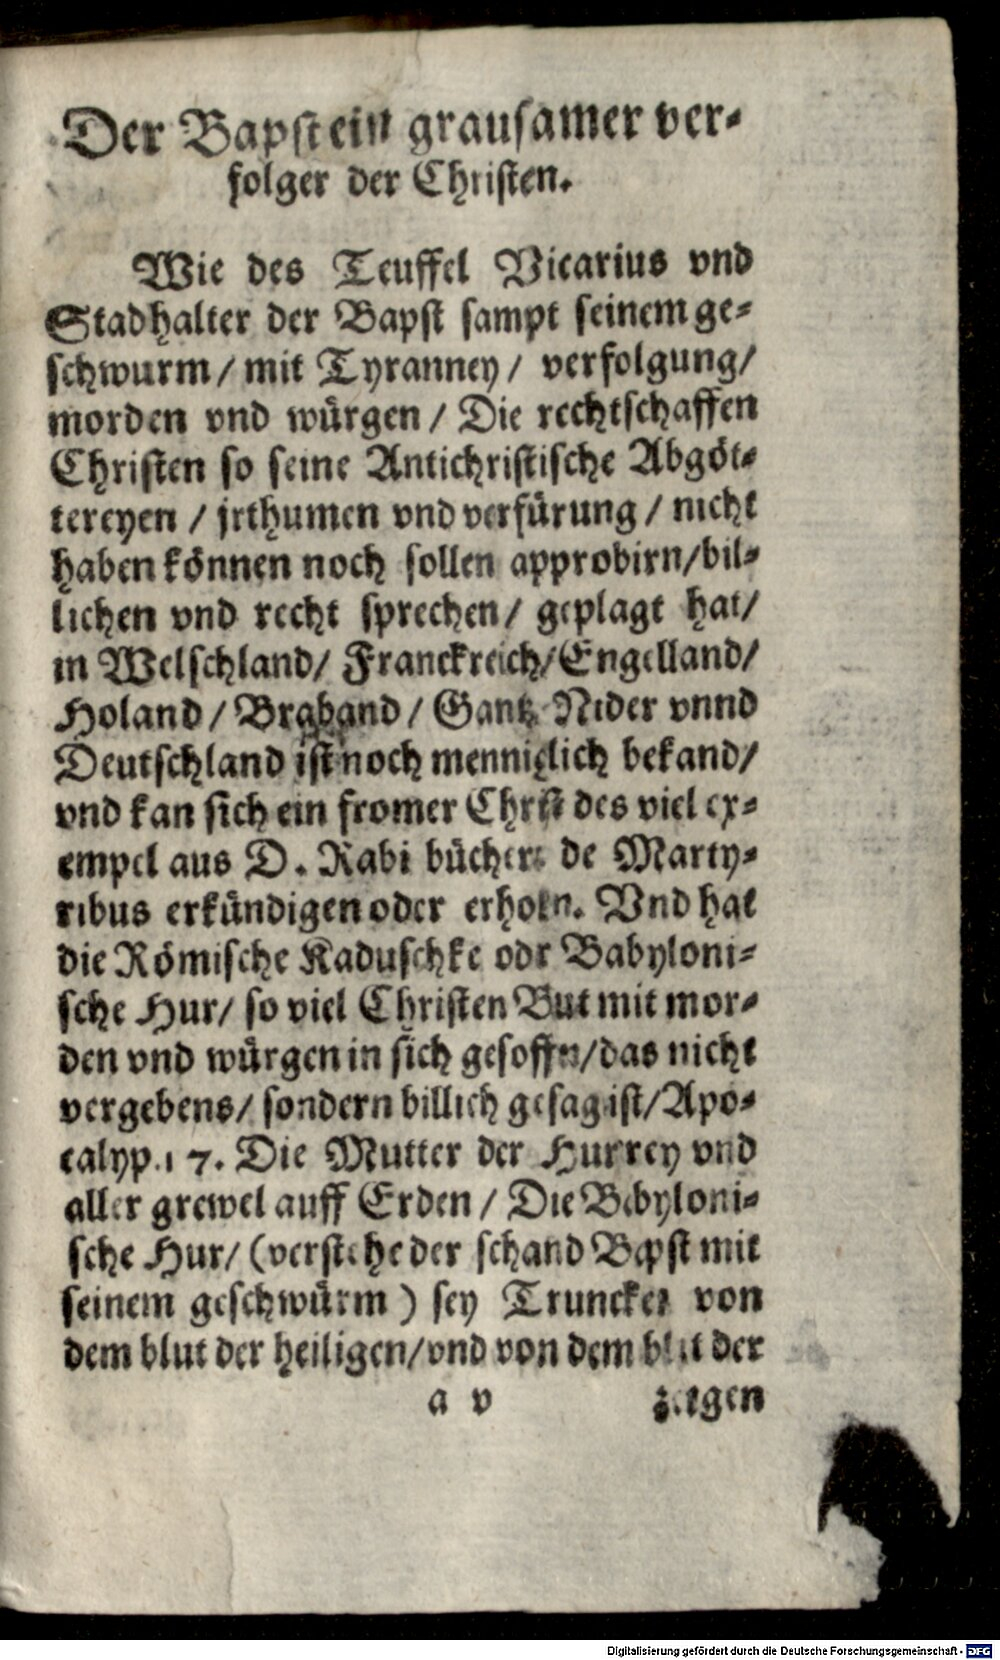 Der Bapst ein grausamer ver-
folger der Christen.
Wie des Teuffel Vicarius vnd
Stadhalter der Bapst sampt seinem ge-
schwurm / mit Tyranney / verfolgung /
morden vnd würgen / Die rechtschaffen
Christen so seine Antichristische Abgöt-
tereyen / jrthumen vnd verfürung / nicht
haben können noch sollen approbirn / bil-
lichen vnd recht sprechen / geplagt hat /
in Welschland / Franckreich / Engelland /
Holand / Braband / Gantz Nider vnnd
Deutschland ist noch menniglich bekand /
vnd kan sich ein fromer Christ des viel ex-
empel aus D. Rabi büchern de Marty-
ribus erkündigen oder erholn. Vnd hat
die Römische Kaduschke odr Babyloni-
sche Hur / so viel Christen But mit mor-
den vnd würgen in sich gesoffn / das nicht
vergebens / sondern billich gesagt ist / Apo-
calyp. 17. Die Mutter der Hurrey vnd
aller grewel auff Erden / Die Babyloni-
sche Hur / (verstehe der schand Bapst mit
seinem geschwürm) sey Truncken von
dem blut der heiligen / vnd von dem blut der
a v zeugen
Digitalisierung gefördert durch die Deutsche Forschungsgemeinschaft - DFG